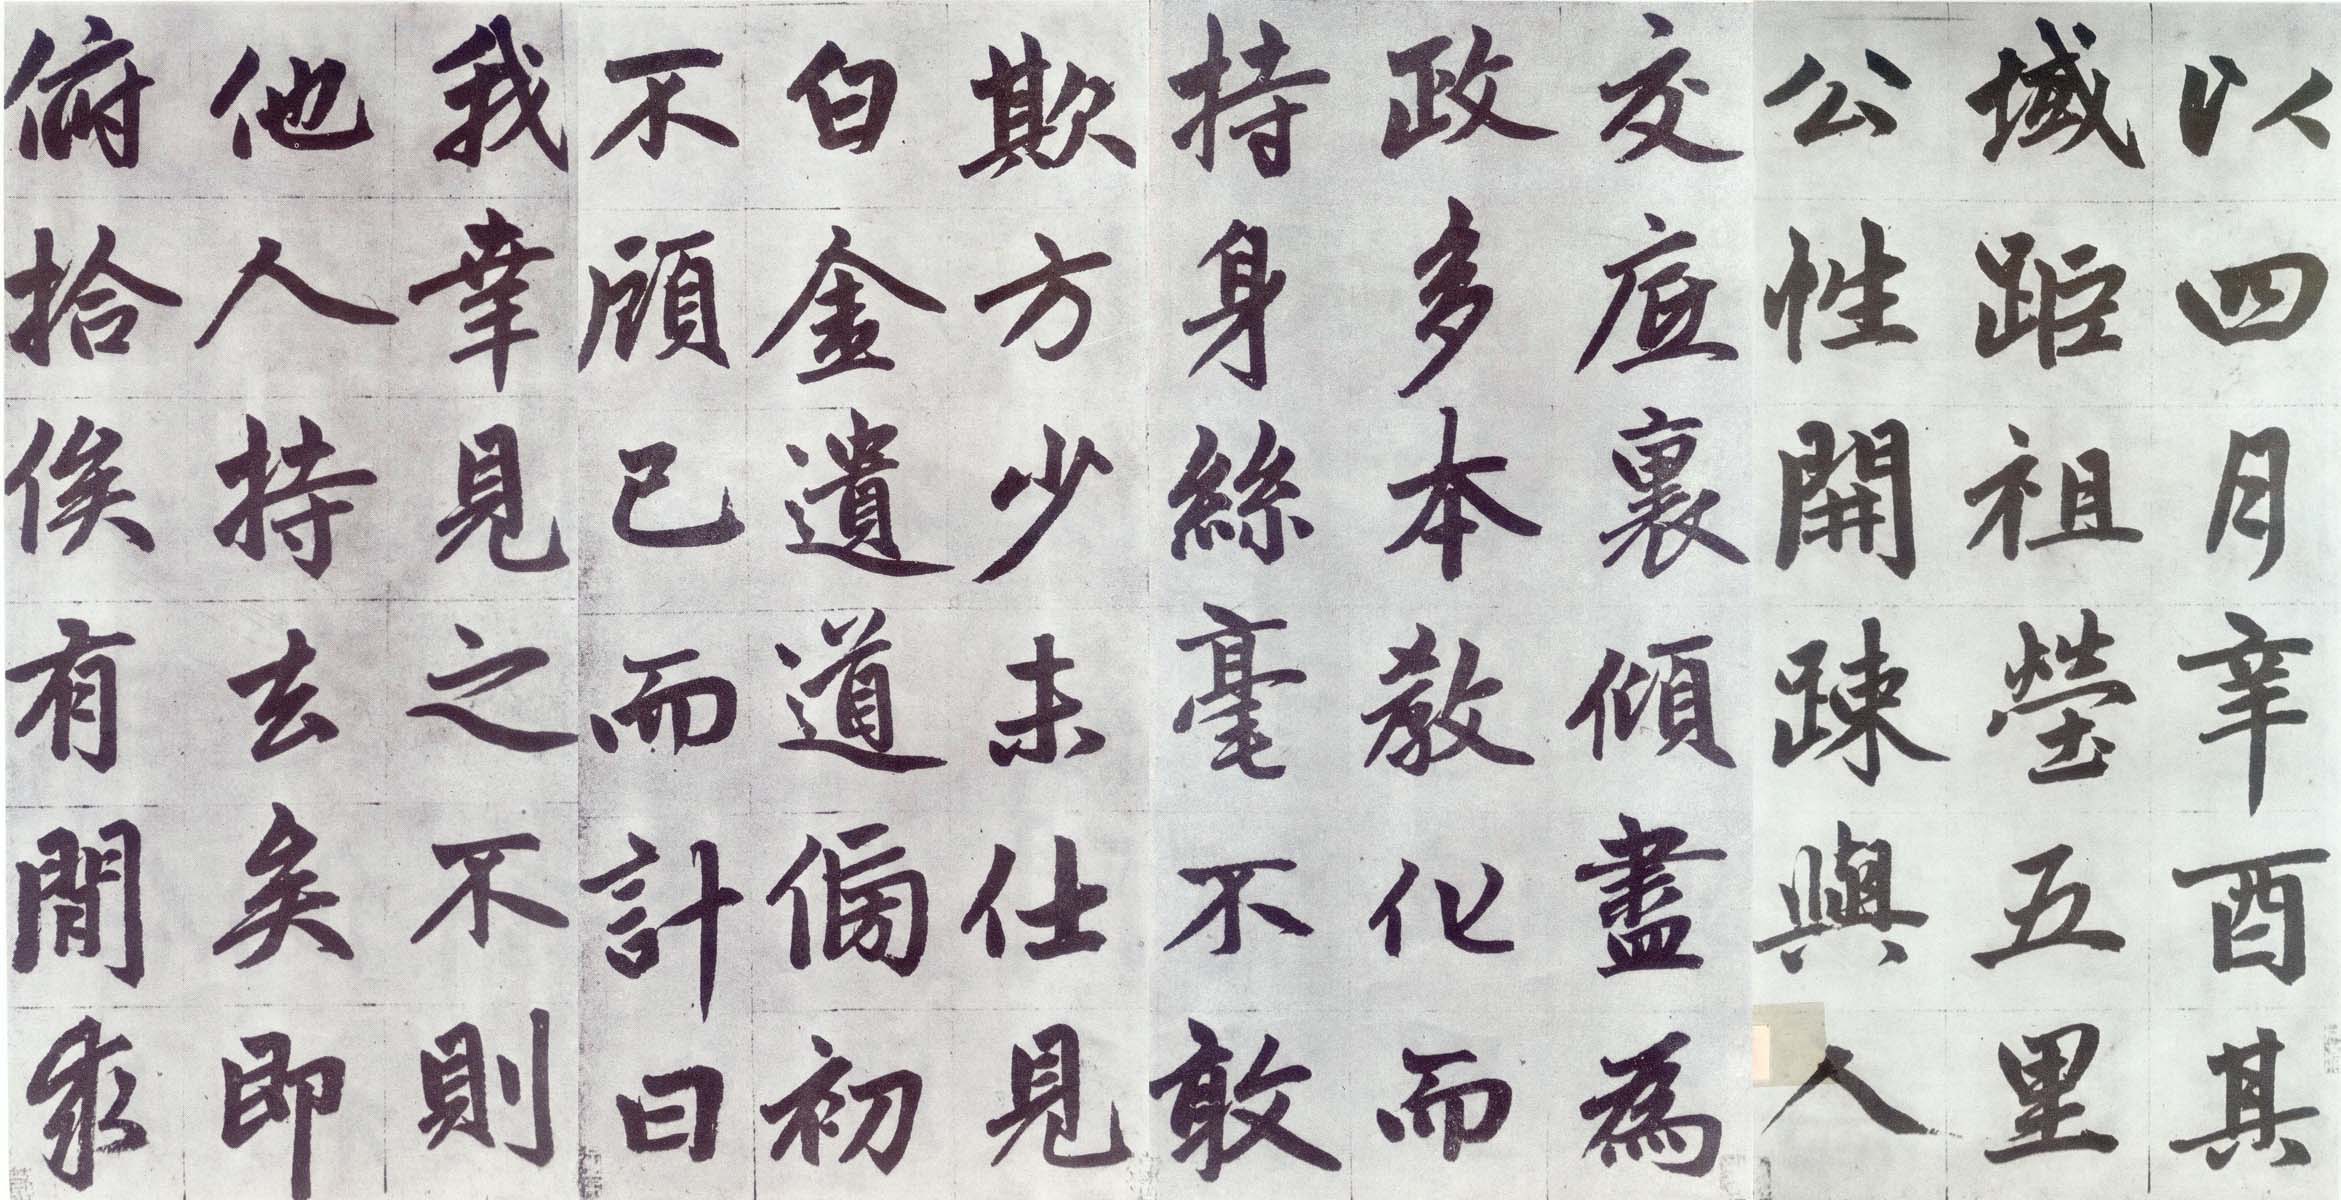 以四月辛酉其
域距祖塋五里
公性開踈與人
交底裏傾盡為
政多本教化而
持身絲毫不敢
欺方少未仕見
白金遺道傍初
不顧已而計曰
我幸見之不則
他人持去矣即
俯拾俟有閒求